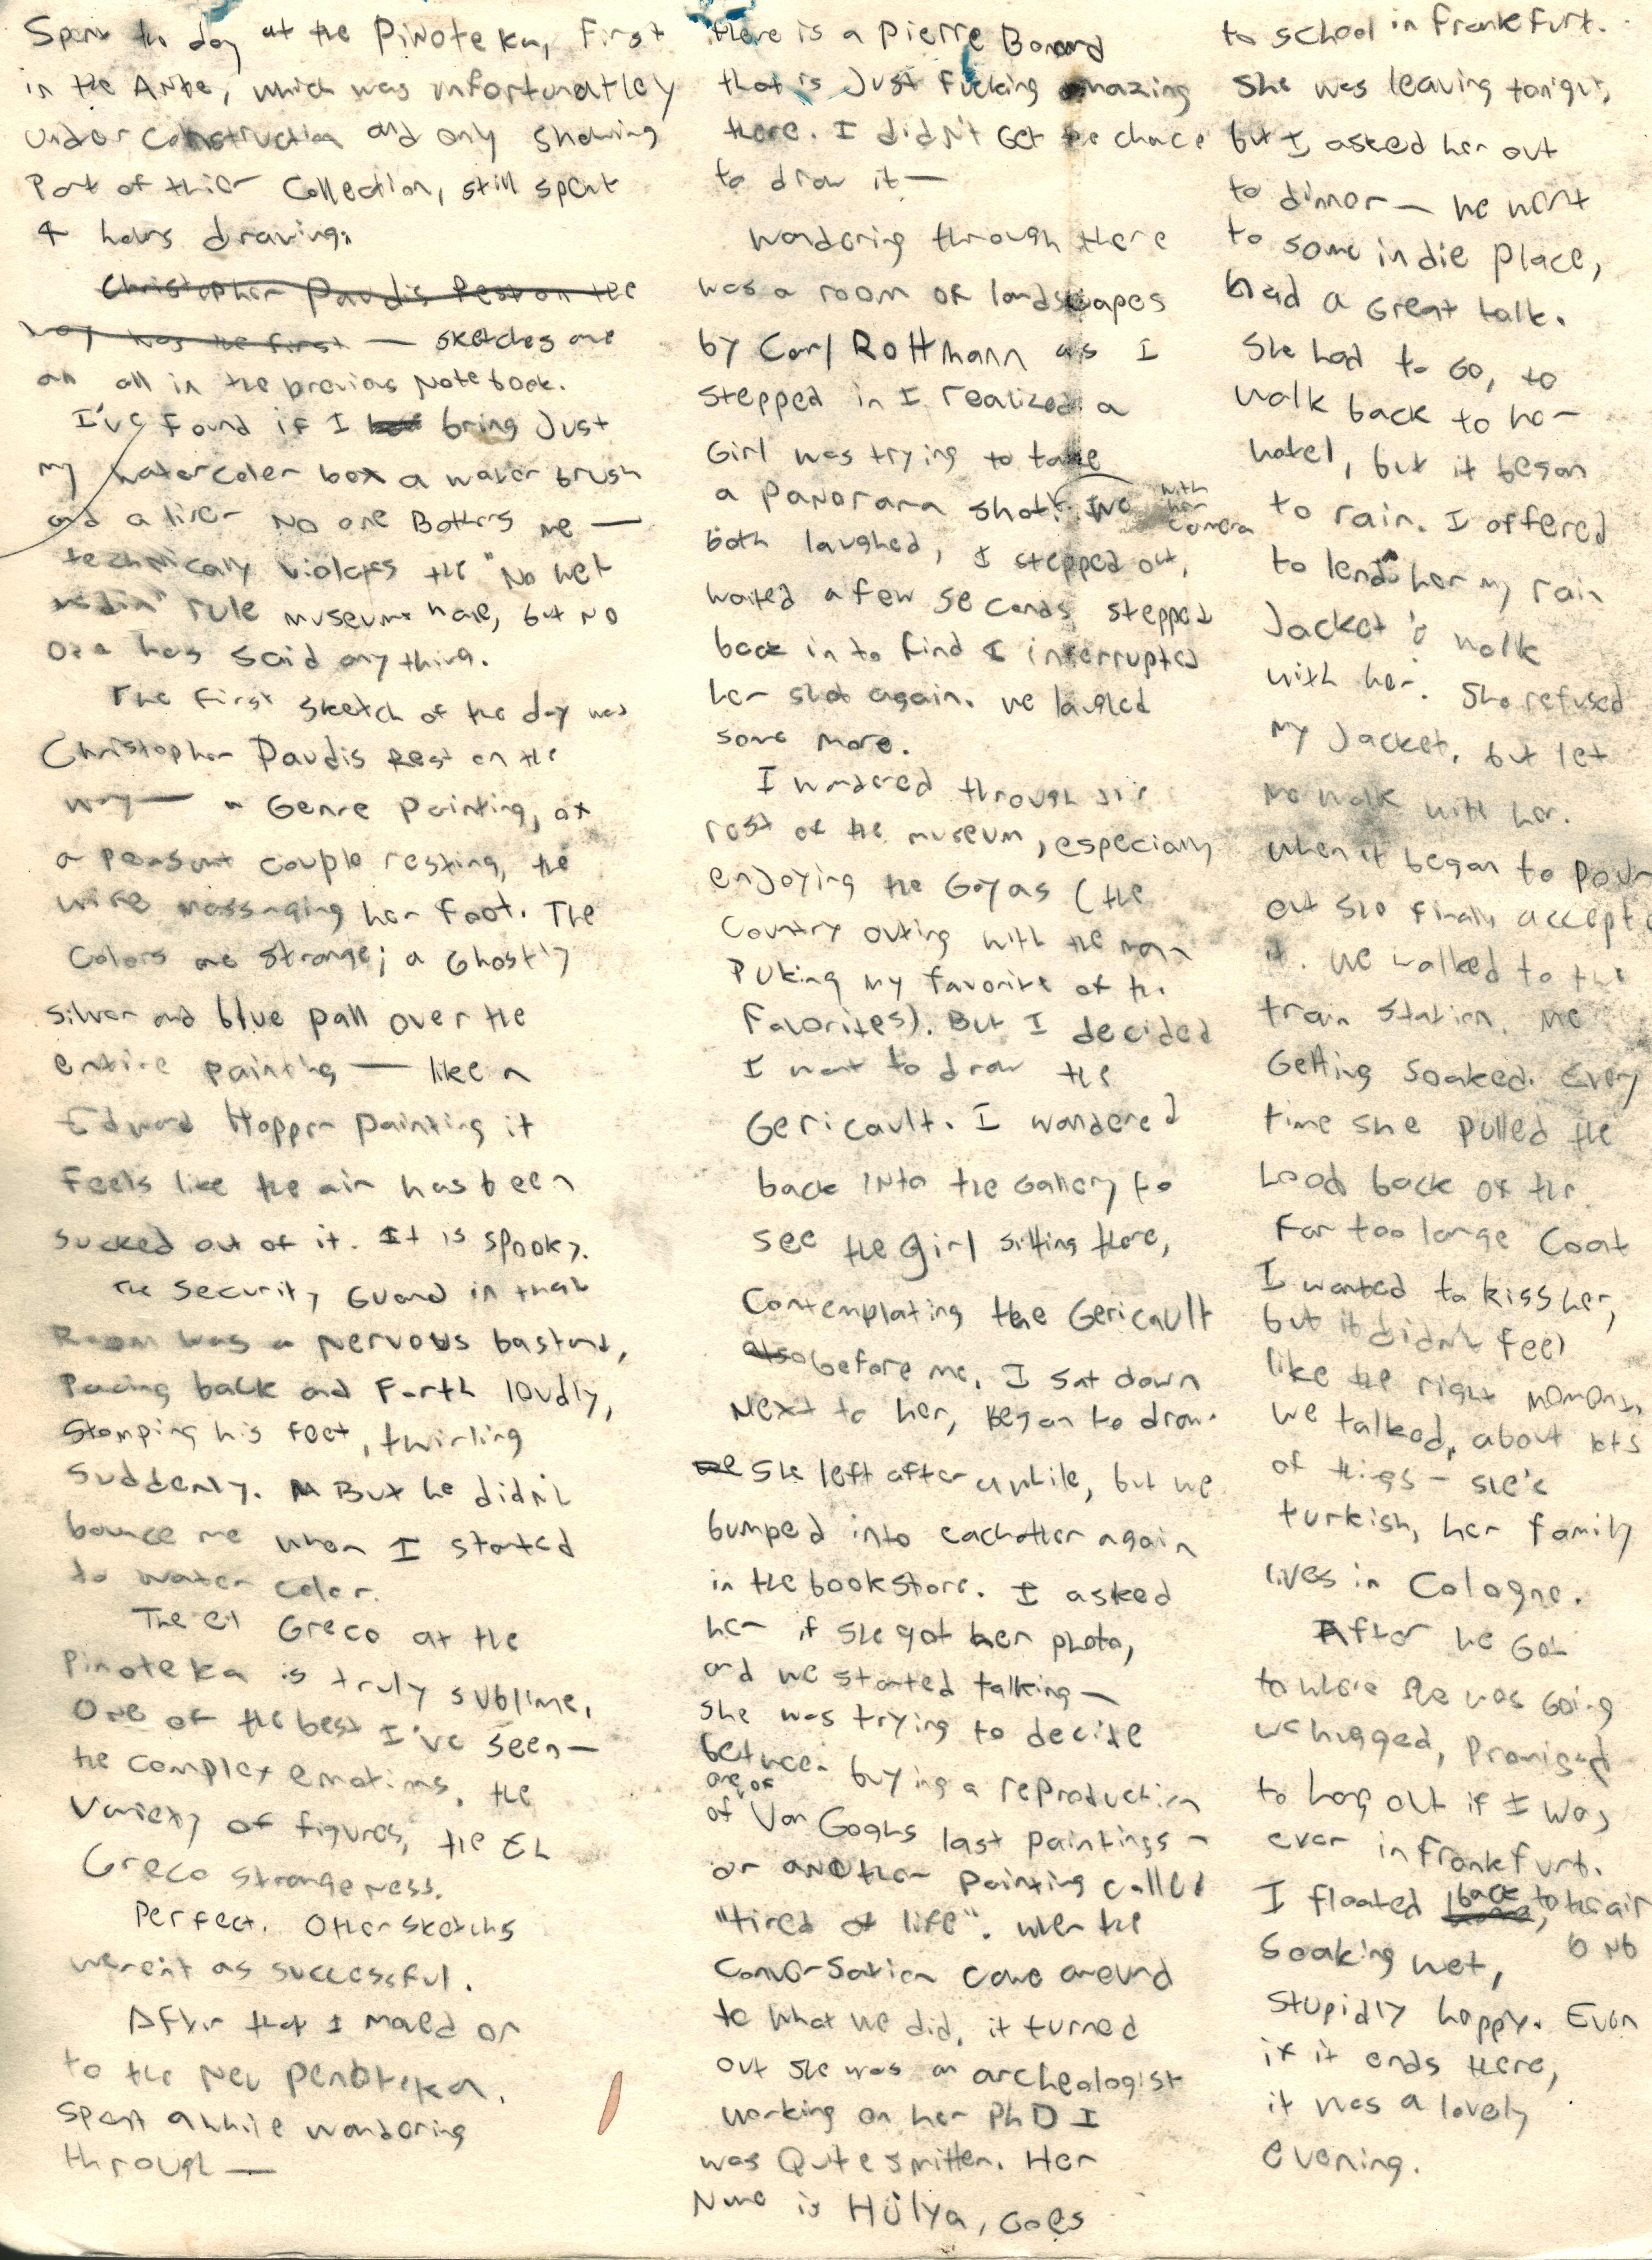 Spent the day at the Pinoteka, First
in the Ante, which was unfortunatley
under construction and only showing
Part of thier Collection, still spent
4 hours drawing.
Christopher Paudis Rest on the
way was the first — sketches are
all in the previous Notebook.
I've found if I bring Just
my watercoler box a water brush
and a liner No one Bothers me —
technically violates the "No wet
media" rule museums have, but NO
one has said anything.
The first sketch of the day was
Christopher Paudis Rest on the
way — a Genre painting, of
a peasant couple resting, the
wife massaging her foot. The
Colors are strange; a Ghostly
silver and blue pall over the
entire painting — like a
Edward Hopper painting it
Feels like the air has been
sucked out of it. It is spooky.
The security Guard in that
Room was a nervous bastard,
Pacing back and Forth loudly,
Stomping his feet, twirling
suddenly. But he didn't
bounce me when I started
to water color.
The El Greco at the
Pinoteka is truly sublime,
One of the best I've seen —
the complex emotions, the
Variety of figures, the EL
Greco strangeness.
Perfect. Other sketchs
werent as successful.
After that I moved on
to the New Penoteka.
Spent awhile wandering
through —
there is a Pierre Bonard
that is Just Fucking amazing
there. I didn't Get the chace
to draw it —
Wandering through there
was a room of landscapes
by Carl Rottmann as I
stepped in I realized a
Girl was trying to take
a PaNorama shot. We
with her camera
both laughed, I stepped out,
waited a few seconds stepped
back in to find I interrupted
her shot again. we laughed
some more.
I wandered through the
rest of the museum, especially
enjoying the Goyas (the
Country outing with the man
Puking my favorite of the
Favorites). But I decided
I want to draw the
Gericault. I wandered
back into the Gallery to
see the girl sitting there,
Contemplating the Gericault
also before me. I sat down
Next to her, Began to draw.
we She left after awhile, but we
bumped into eachother again
in the bookstore. I asked
her if she got her photo,
and we started talking —
she was trying to decide
between buying a reproduction
one of
of Van Goghs last paintings —
or another painting called
"tired of life". When the
Conversation came around
to what we did, it turned
out she was an archeologist
working on her PhD I
was Quite smitten. Her
Name is Hülya, Goes
to school in Frankefurt.
She was leaving tonight,
but I asked her out
to dinner — we went
to some indie place,
had a Great talk.
She had to Go, to
walk back to ho-
hotel, but it began
to rain. I offered
to lend her my rain
Jacket & walk
with her. She refused
my Jacket, but let
me walk with her.
when it began to pour
out she finally accepte
it. We walked to the
train station. Me
Getting soaked. Every
time she pulled the
hood back of the
Far too large Coat
I wanted to kiss her,
but it didn't feel
like the right moment,
we talked, about lots
of things — she's
turkish, her family
lives in Cologne.
After we Got
to where she was Going
we hugged, Promised
to hang out if I was
ever in Frankfurt.
I floated back to the air
b Nb
Soaking wet,
Stupidly happy. Even
if it ends there,
it was a lovely
evening.